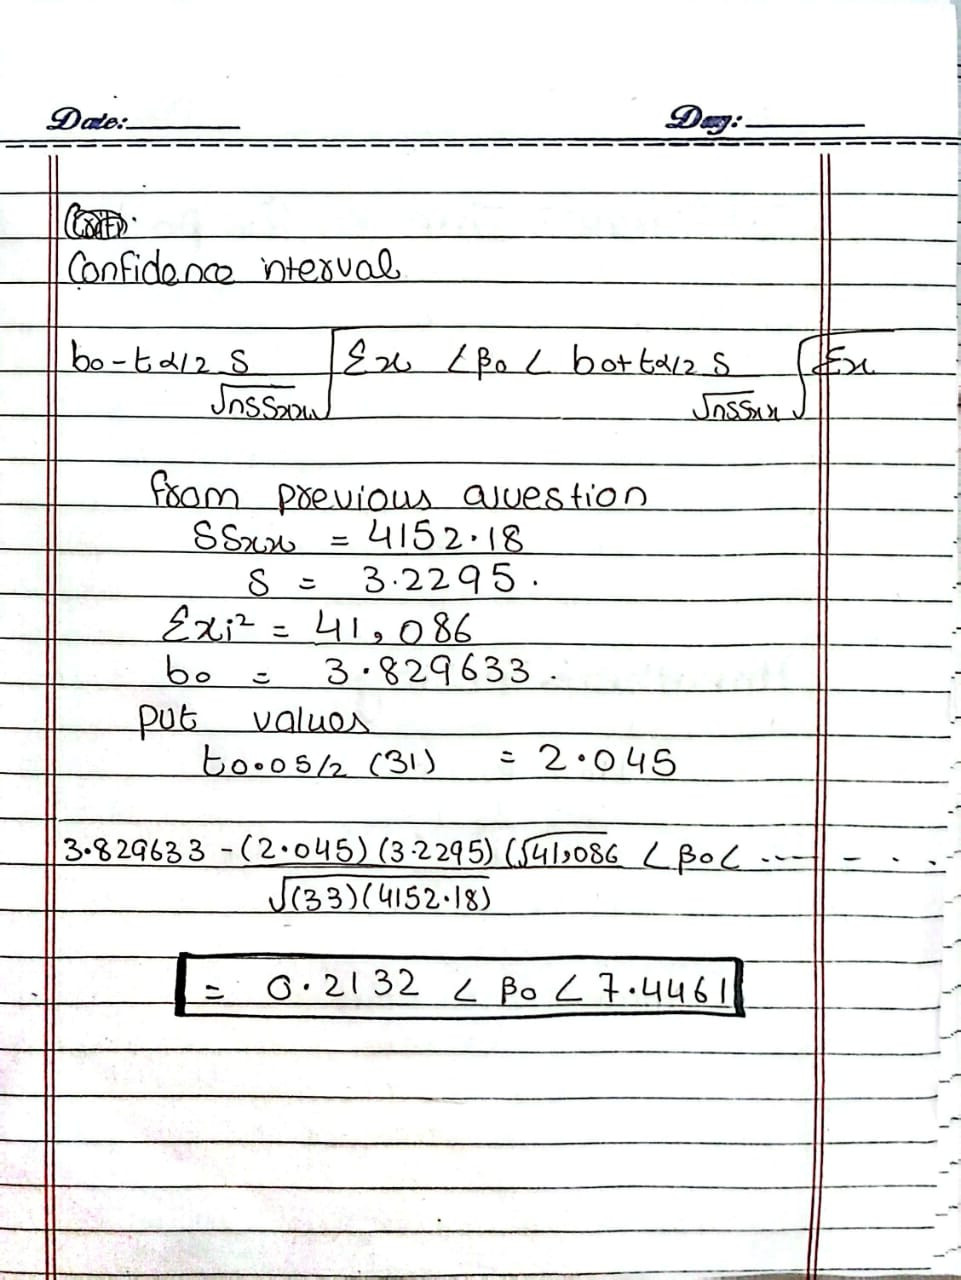 Date: Day:
Confidence interval
b0 - tα/2 S / √nSSxx √Σx < β0 < b0 + tα/2 S / √nSSxx √Σx
from previous question
SSxx = 4152.18
S = 3.2295.
Σxi² = 41,086
b0 = 3.829633.
Put values
t0.05/2 (31) = 2.045
3.829633 - (2.045) (3.2295) (√41,086 < β0 < .... - - . .
√(33)(4152.18)
= 0.2132 < β0 < 7.4461